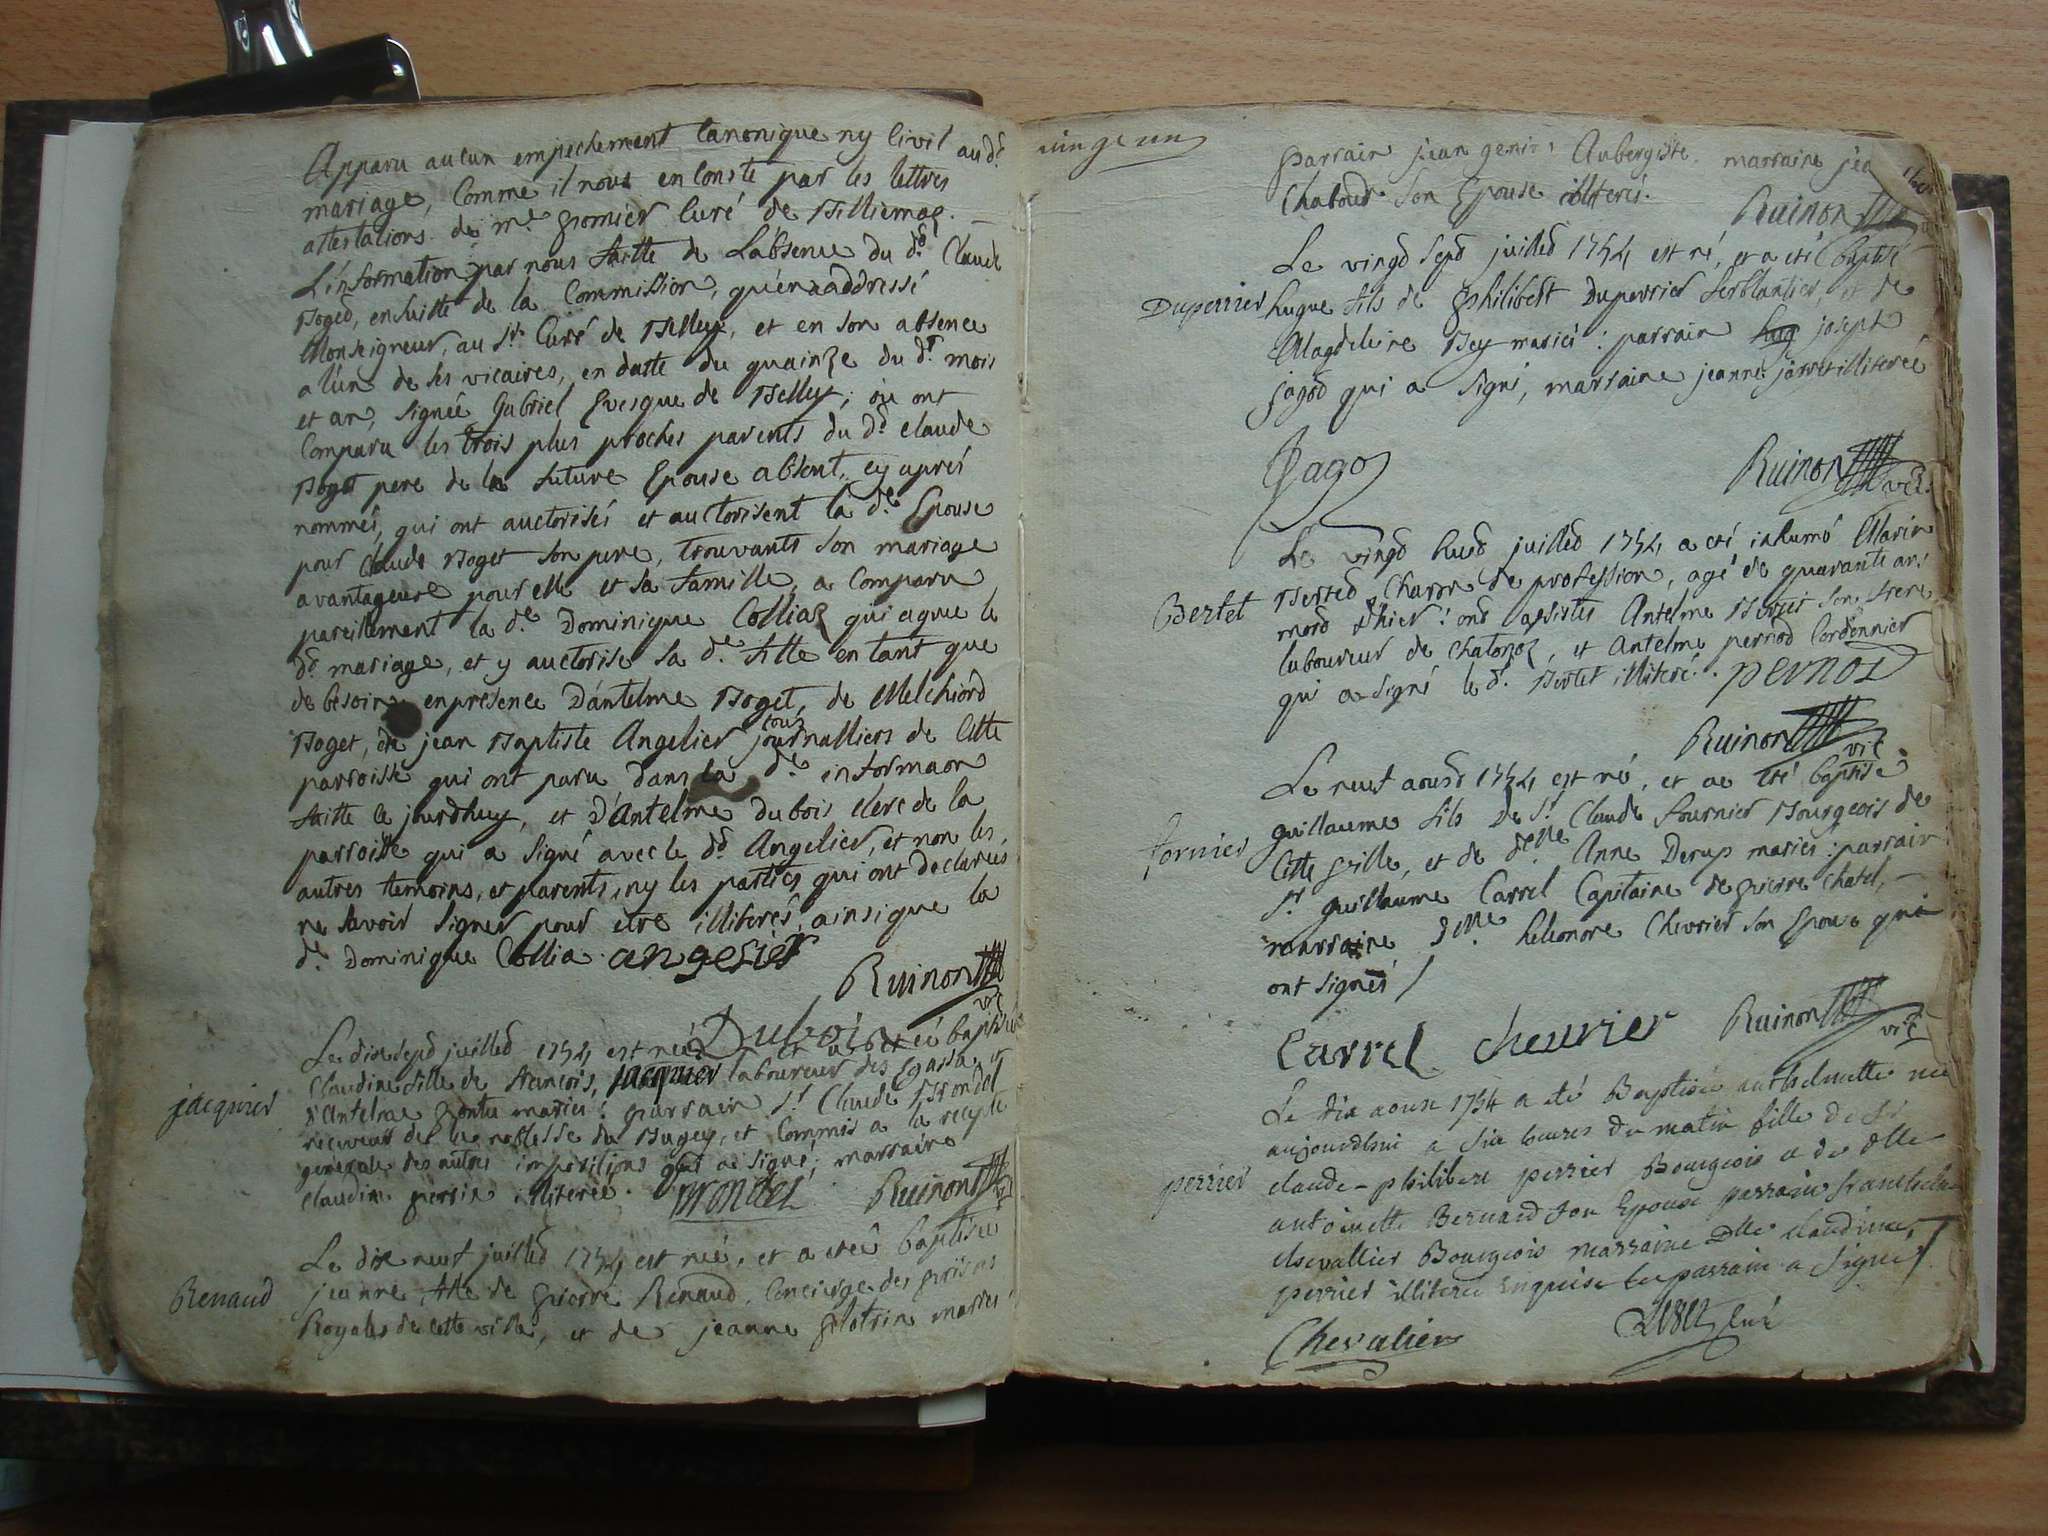 Apparu aucun empechement Canonique ny Civil au d.t
mariage, Comme il nous en Conste par les lettres
attestations de m.e gromier Curé de Billiemaz. —
L'information par nous faitte de L'absence du d.t Claude
Boged, ensuitte de la Commission, qu'en a addressé
Monseigneur, au S.r Curé de Belley, et en son absence
a l'un de ses vicaires, en datte du quainze du d.t mois
et an, signée Gabriel Evesque de Belley; où ont
Comparu les trois plus proches parents du d.t claude
Boget pere de la future Epouse absent, cy aprés
nommés, qui ont auctorisés et auctorisent la d.e Epouse
pour Claude Boget son pere, trouvants son mariage
avantageux pour elle et sa famille, a Comparu
pareillement la d.e Dominique Colliaz qui agrée le
d.t mariage, et y auctorise sa d.e fille en tant que
de besoin, en presence D'antelme Boget, de Melchiord
Boget, de jean Baptiste Angelier tous journalliers de Cette
parroisse qui ont paru dans la d.e informaon
faitte ce jourdhuy, et D'Antelme dubois clerc de la
parroisse qui a signé avec le d.t Angelier, et non les
autres temoins, et parents, ny les parties qui ont declarées
ne savoir signer pour etre illiterés, ainsi que la
d.e Dominique Collia. angelier
Ruinon vic
Dubois
Le dix sept juilled 1754 est née et a eté baptisée
jacquier
Claudine fille de francois jacquier laboureur des Ecassa et
d'Antelme gontu mariés: parrain S.r Claude Brondel
receveur de la noblesse du Bugey, et Commis a la recepte
generale des autres impositions qui a signé; marraine
claudine persin illiterée. Brondel Ruinon vic
Le dix neuf juilled 1754 est née, et a eteé baptisée
Renaud
jeanne fille de pierre Renaud, Concierge des prisons
Royales de cette ville, et de jeanne plotrin mariés
parrain jean Aubergiste. marraine
Chaboud son Epouse illiterés.
Ruinon
Le vingd sepd juilled 1754 est né, et a eté baptisé
Duperrier
hugue fils de philibert Duperrier ferblantier, et de
Magdeleine Bey mariés: parrain hug joseph
jagod qui a signé, marraine jeanne jarret illiterée
Jago
Ruinon vic
Le vingd huid juilled 1754 a eté inhumé Marin
Bertet
Berted, Charon de profession, agé de quarante ans
mord d'hier: ond assistés Antelme Bertet son frere,
laboureur de Chatonoz, et Antelme pernod Cordonnier
qui a signé le d.t Bertet illiteré. pernot
Ruinon vic
Le neuf aoust 1754 est né, et a eté baptisé
fornier
guillaume fils de S.r Claude fournier Bourgeois de
Cette ville, et de d.elle Anne Derup mariés: parrain
S.r guillaume Carrel Capitaine de pierre Chatel, —
marraine D.elle heleonore Chevrier son Epouse qui
ont signés /
Carrel Cheurier Ruinon vic
Le dix aoust 1754 a eté Baptisée anthelmette née
aujourdhui a six heures du matin fille de Sr
perrier
claude-philibert perrier Bourgeois et de dlle
antoinette Bernard son Epouse parrain
chevallier Bourgeois marraine dlle claudine
perrier illiterée Enquise le parrain a signé /
Chevalier
Curé